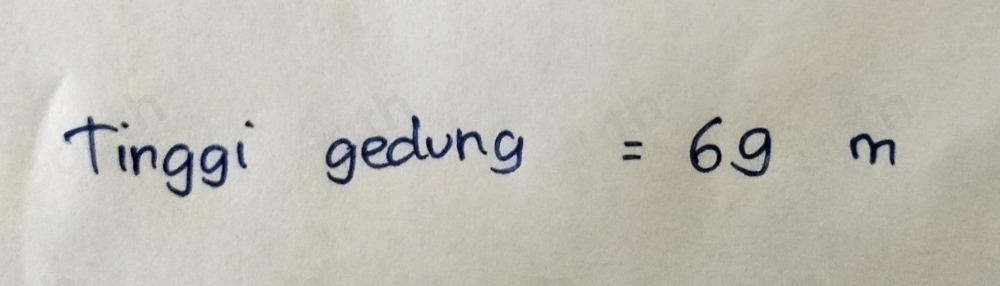 Tinggi gedung = 69 m